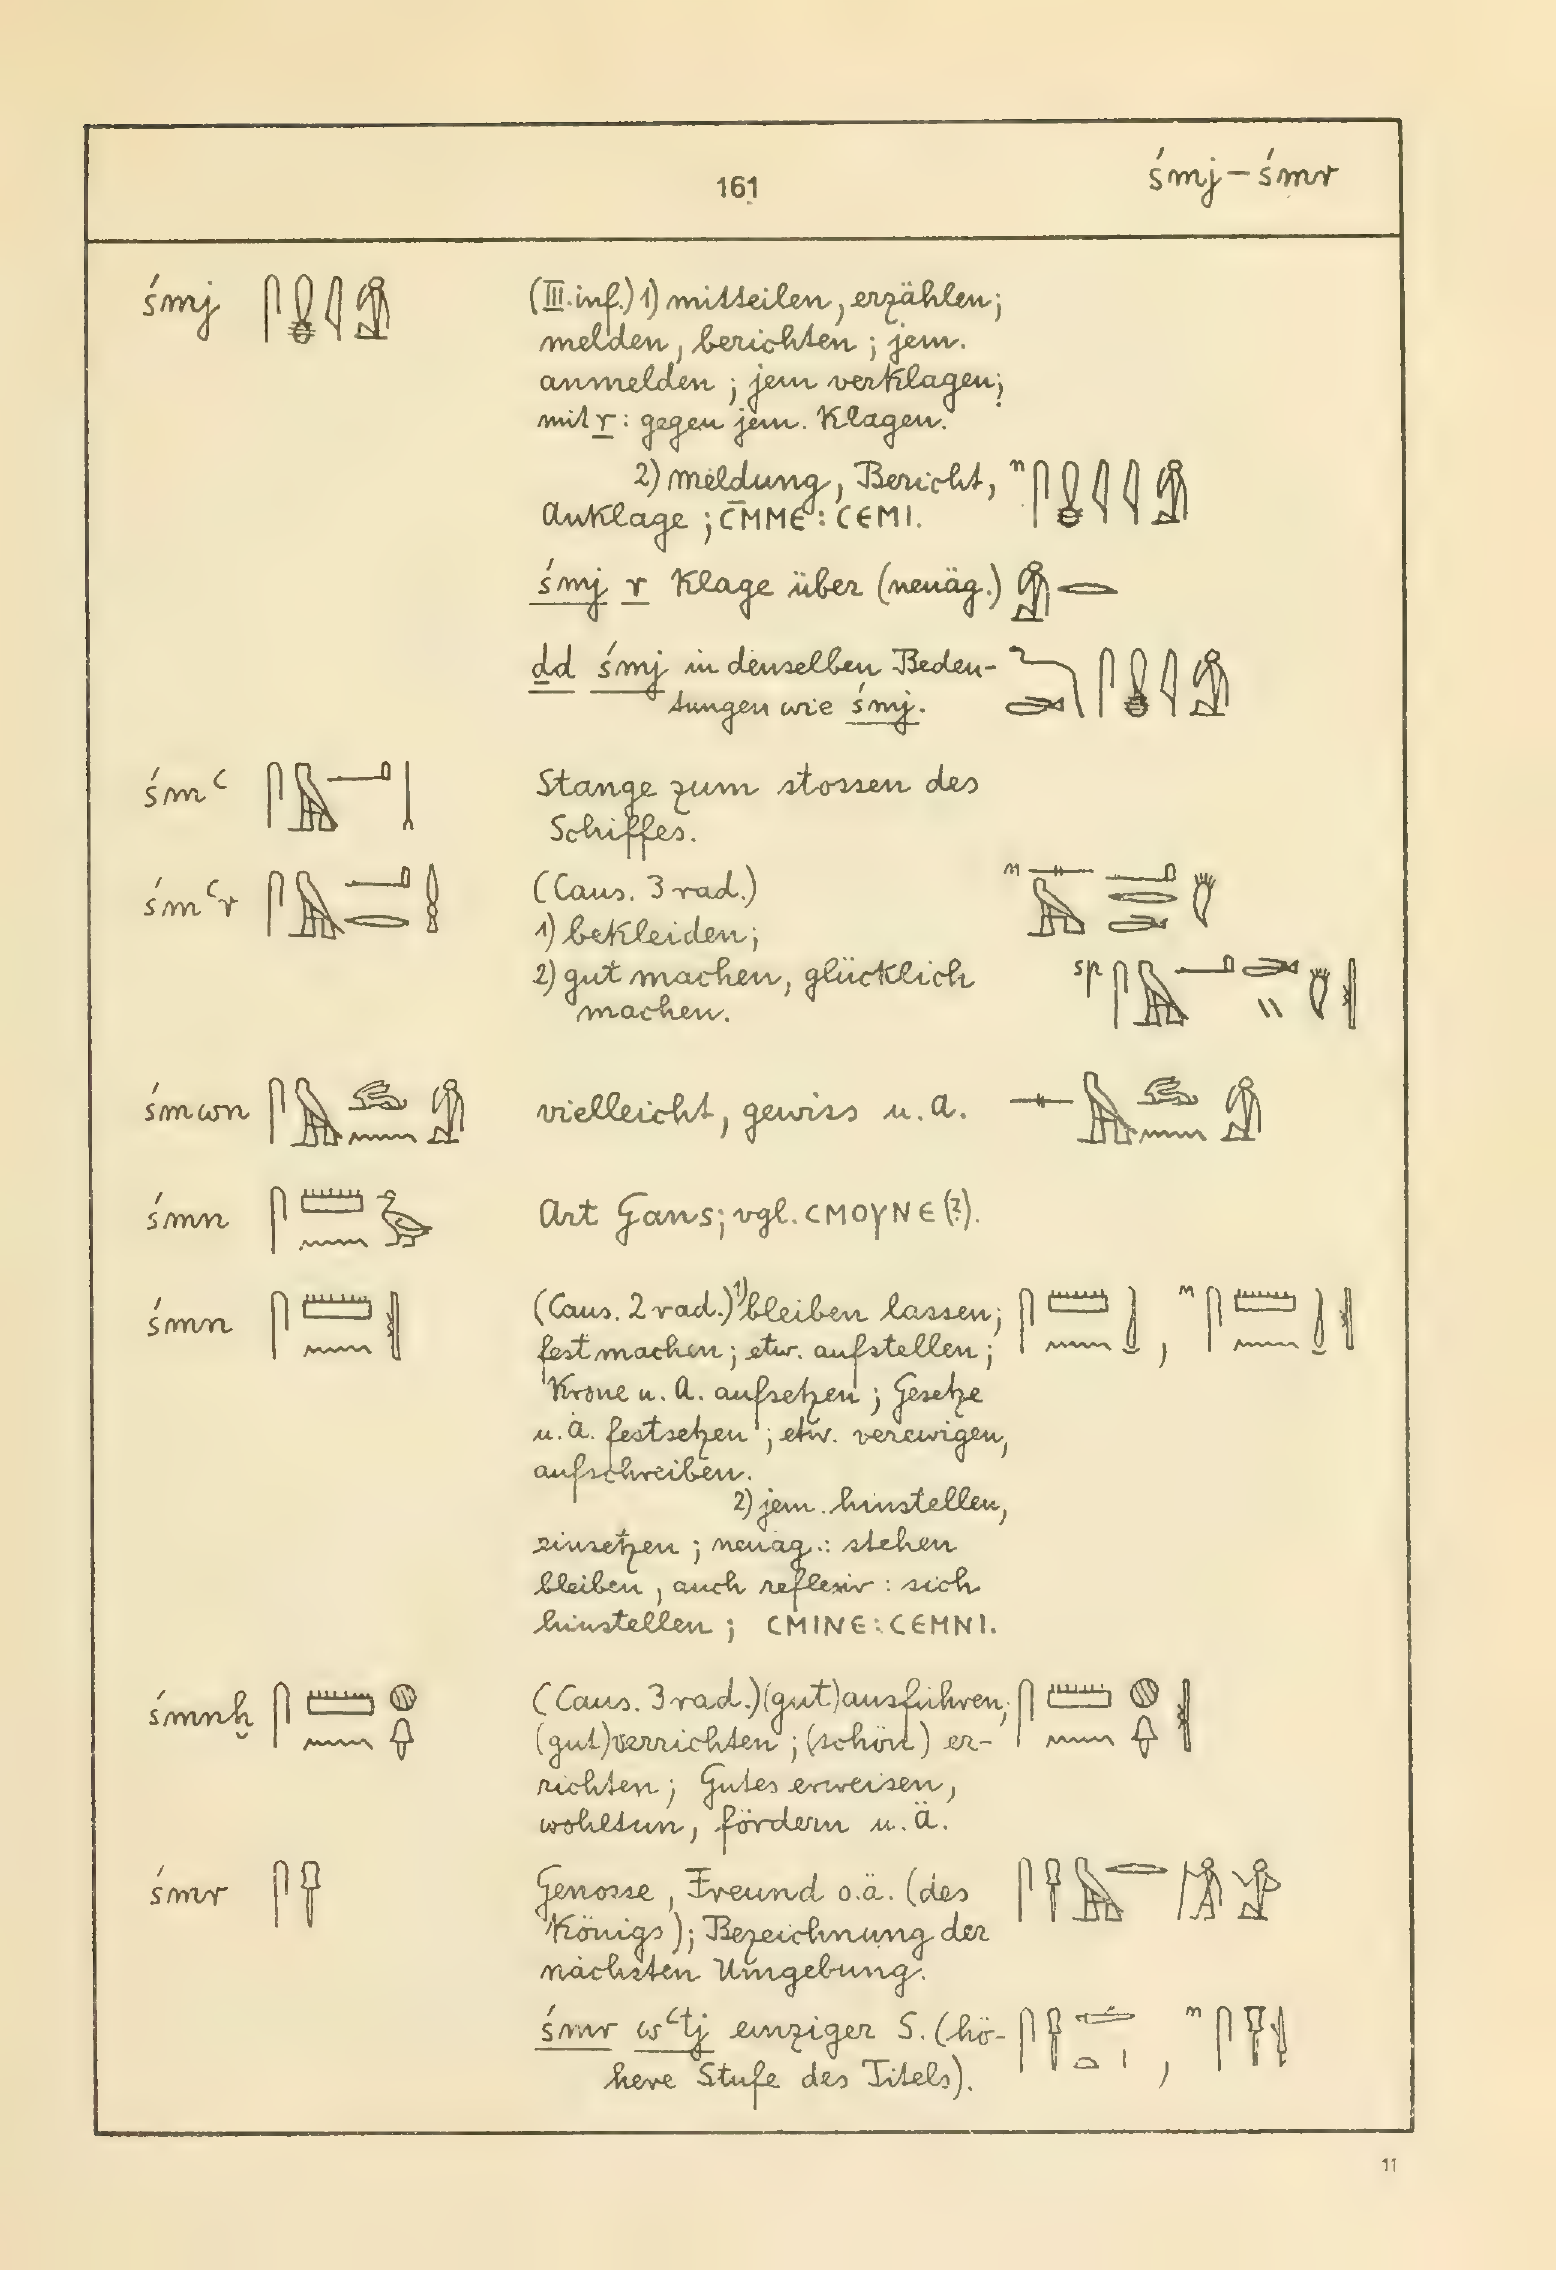 161
śmj – śmr
śmj (III. inf.) 1) mitteilen, erzählen;
melden, berichten; jem.
anmelden; jem verklagen;
mit r: gegen jem. Klagen.
2) meldung, Bericht, n
Anklage; C̄MME : CEMI.
śmj r Klage über (neuäg.)
ḏd śmj in denselben Bedeu-
tungen wie śmj.
śmꜥ Stange zum stossen des
Schiffes.
śmꜥr (Caus. 3 rad.) m
1) bekleiden;
2) gut machen, glücklich sp
machen.
śmwn vielleicht, gewiss u. A.
śmn Art Gans; vgl. CMOYNE (?).
śmn (Caus. 2 rad.) 1) bleiben lassen; , m
fest machen; etw. aufstellen;
Krone u. A. aufsetzen; Gesetze
u. ä. festsetzen; etw. verewigen,
aufschreiben.
2) jem. hinstellen,
einsetzen; neuäg.: stehen
bleiben, auch reflexiv: sich
hinstellen; CMINE : CEMNI.
śmnḫ (Caus. 3 rad.) (gut) ausführen;
(gut) verrichten; (schön) er-
richten; Gutes erweisen,
wohltun, fördern u. Ä.
śmr Genosse, Freund o. ä. (des
Königs); Bezeichnung der
nächsten Umgebung.
śmr wꜥtj einziger S. (hö- , m
here Stufe des Titels).
11